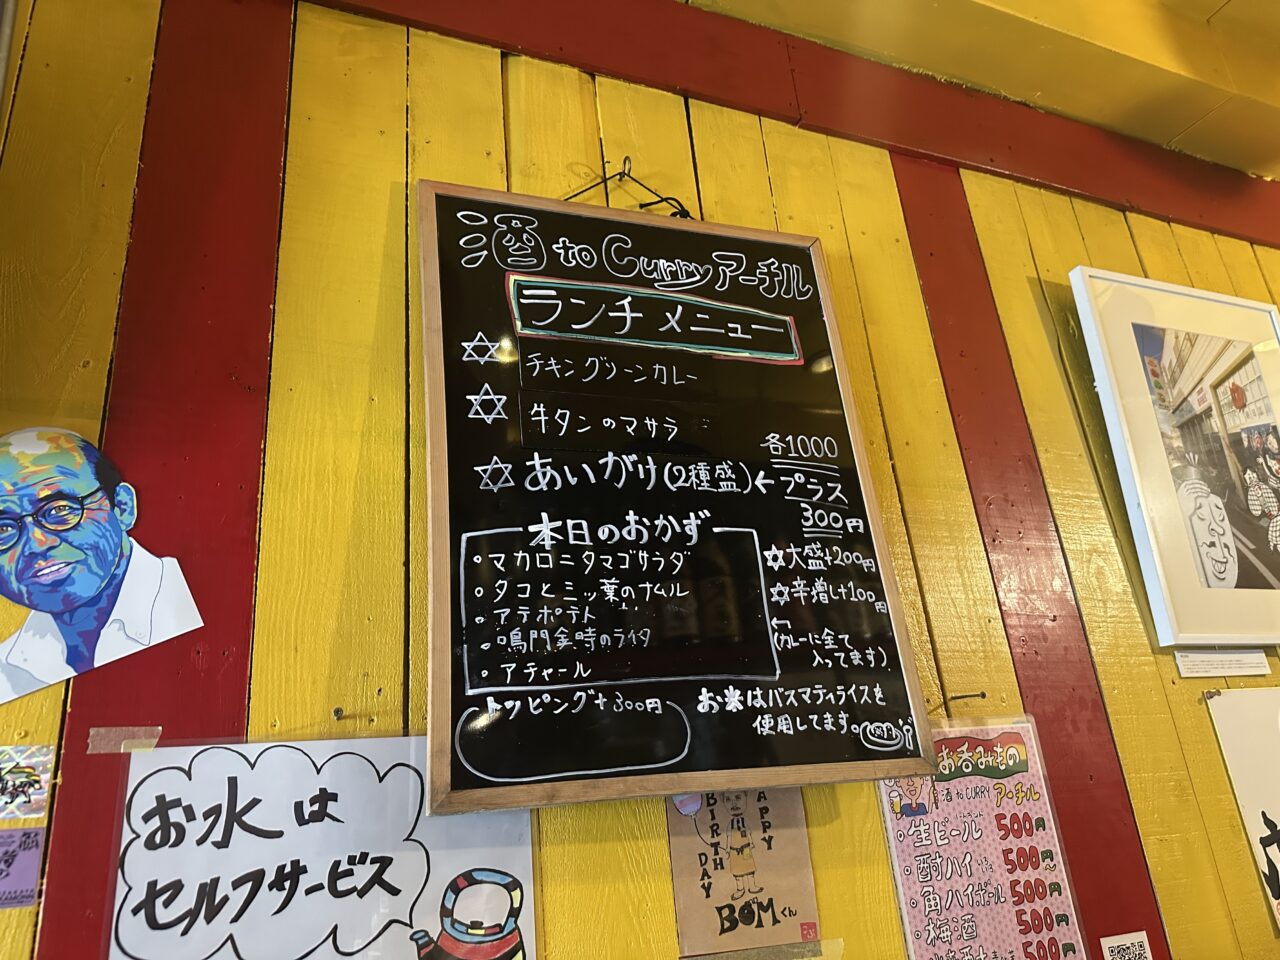 酒 to Curry アーチル
ランチメニュー
チキングリーンカレー
牛タンのマサラ
各1000
あいがけ(2種盛)←プラス
300円
本日のおかず
・マカロニタマゴサラダ
・タコと三ッ葉のナムル
・アテポテト
・鳴門金時のライタ
・アチャール
大盛+200円
辛増し+100円
(カレーに全て
入ってます)
トッピング+300円
お米はバスマティライスを
使用してます。
お水は
セルフサービス
HAPPY
BIRTHDAY
BOMくん
お呑みもの
酒 to CURRY アーチル
・生ビール 500円
・酎ハイ 500円~
・角ハイボール 500円
・梅酒 500円
500円